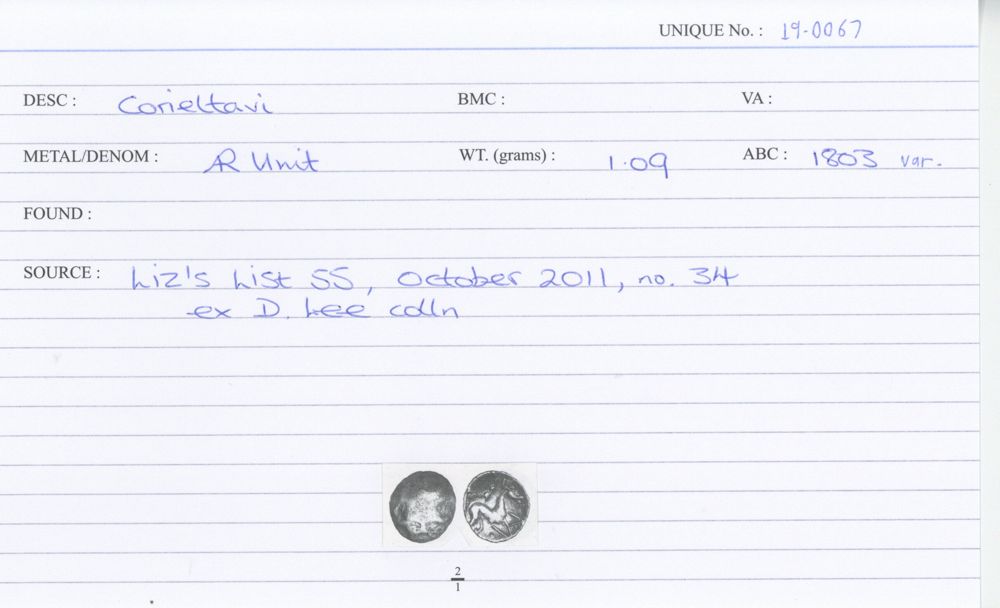 UNIQUE No. : 19-0067
DESC : Corieltavi BMC : VA :
METAL/DENOM : AR Unit WT. (grams) : 1.09 ABC : 1803 var.
FOUND :
SOURCE : Liz's List 55, October 2011, no. 34
ex D. Lee colln
2
1